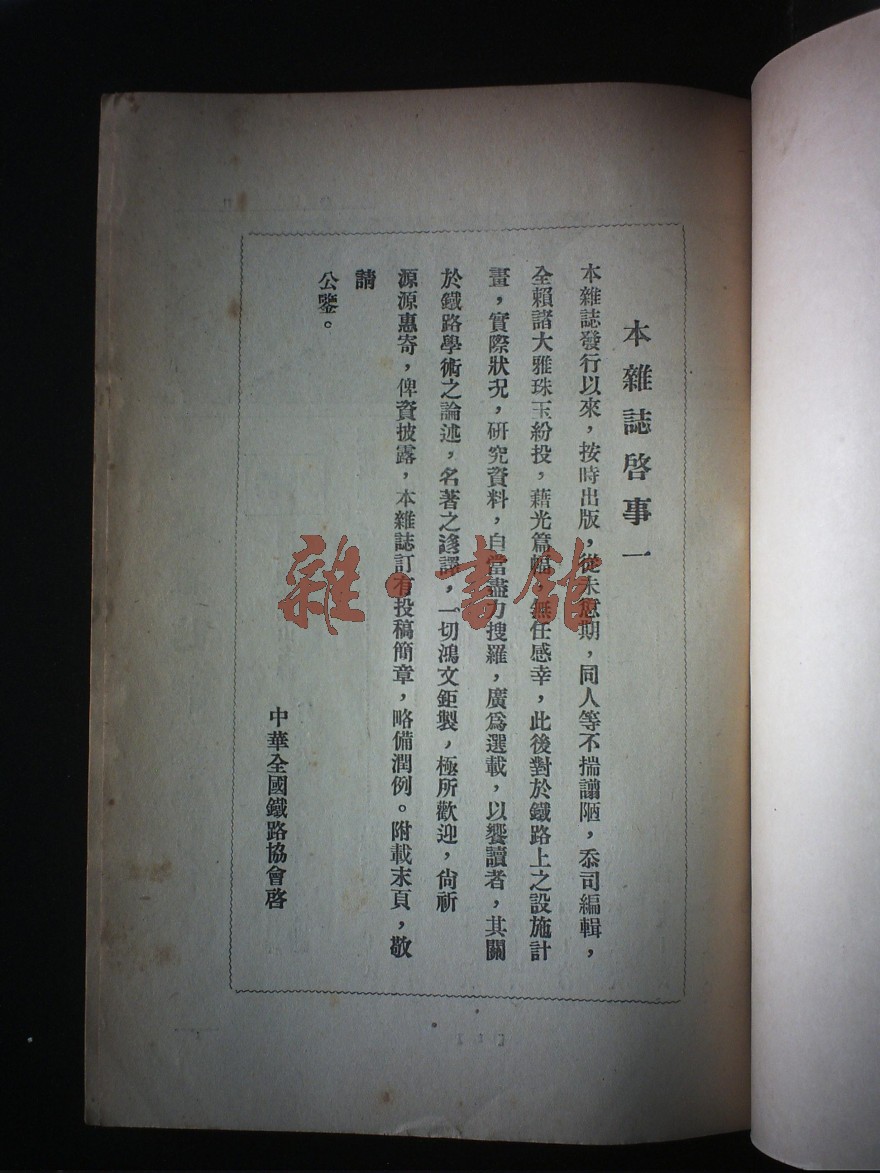 本雜誌啓事一
本雜誌發行以來，按時出版，從未愆期，同人等不揣譾陋，忝司編輯，
全賴諸大雅珠玉紛投，藉光篇幅，無任感幸，此後對於鐵路上之設施計
畫，實際狀况，研究資料，自當盡力搜羅，廣爲選載，以饗讀者，其關
於鐵路學術之論述，名著之迻譯，一切鴻文鉅製，極所歡迎，尙祈
源源惠寄，俾資披露，本雜誌訂有投稿簡章，略備潤例。附載末頁，敬
請
公鑒。
中華全國鐵路協會啓
雜·書館